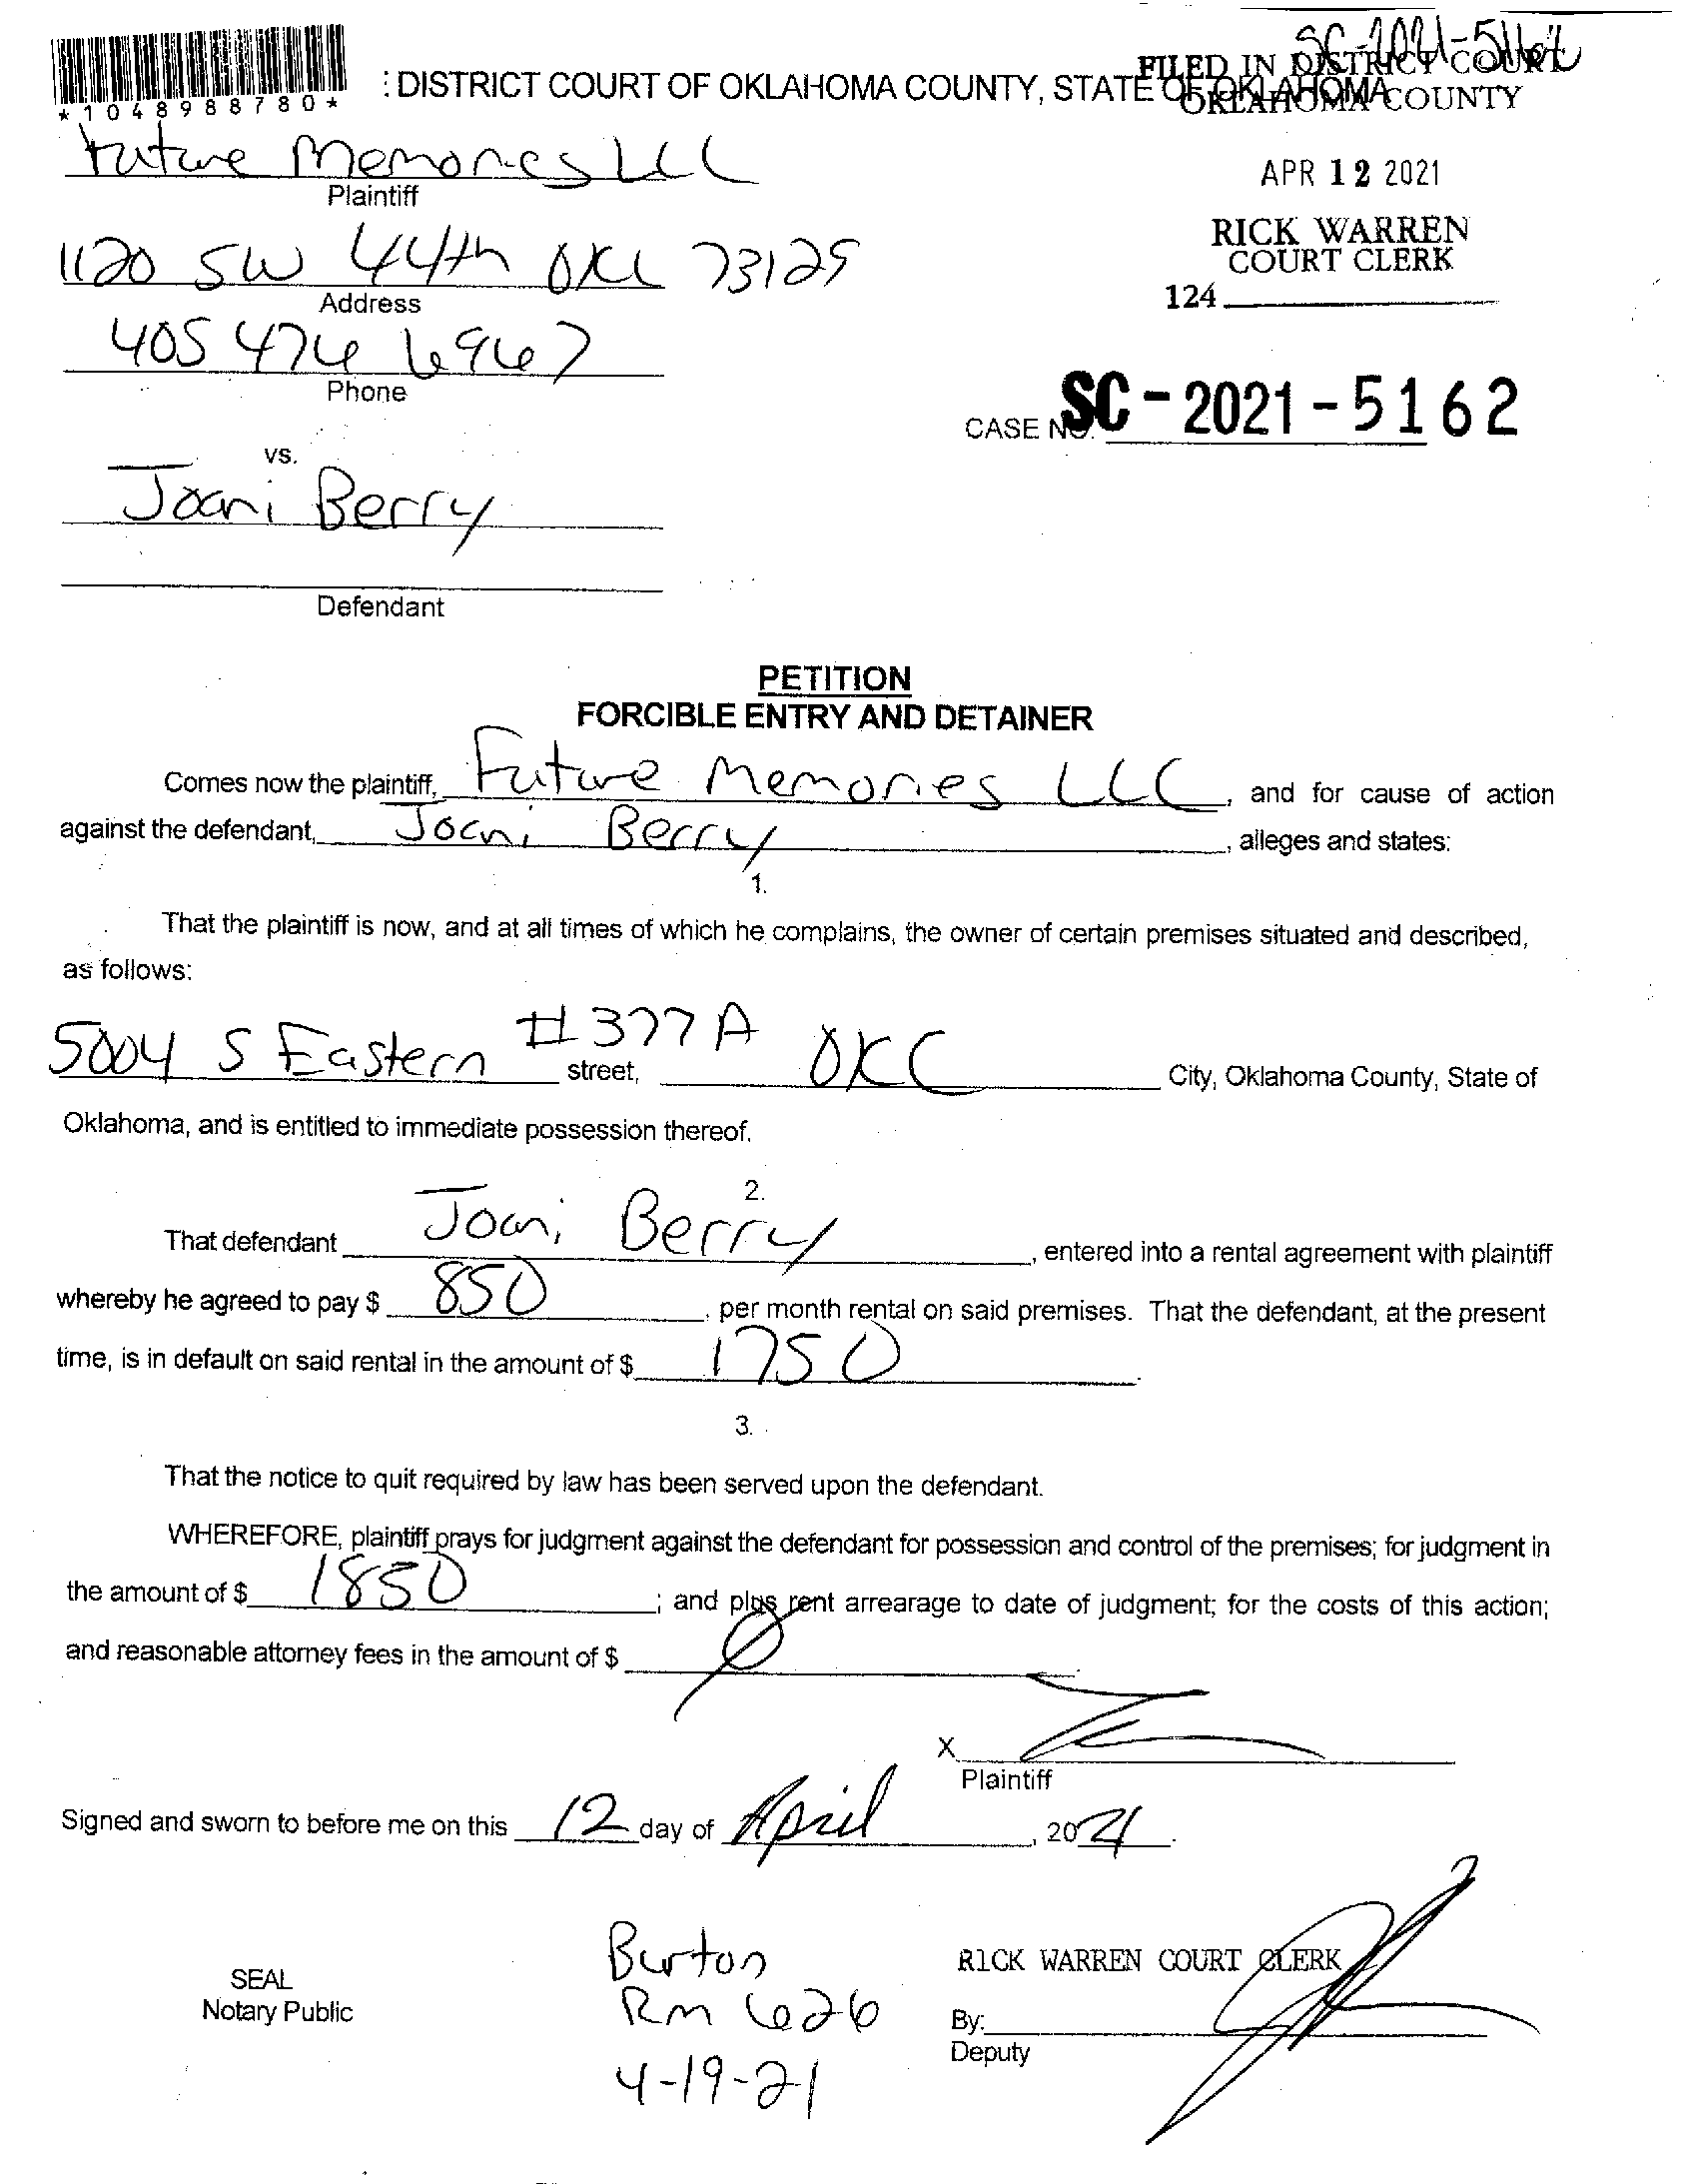 SC-2021-5162
FILED IN DISTRICT COURT
OKLAHOMA COUNTY
: DISTRICT COURT OF OKLAHOMA COUNTY, STATE OF OKLAHOMA
*1048988780*
Future Memories LLC
Plaintiff
APR 12 2021
RICK WARREN
COURT CLERK
124
1120 SW 44th OKC 73129
Address
405 476 6967
Phone
CASE NO. SC-2021-5162
vs.
Joani Berry
Defendant
PETITION
FORCIBLE ENTRY AND DETAINER
Comes now the plaintiff, Future Memories LLC, and for cause of action
against the defendant, Joani Berry, alleges and states:
1.
That the plaintiff is now, and at all times of which he complains, the owner of certain premises situated and described,
as follows:
5004 S Eastern #377A street, OKC City, Oklahoma County, State of
Oklahoma, and is entitled to immediate possession thereof.
2.
That defendant Joani Berry, entered into a rental agreement with plaintiff
whereby he agreed to pay $ 850, per month rental on said premises. That the defendant, at the present
time, is in default on said rental in the amount of $ 1750.
3.
That the notice to quit required by law has been served upon the defendant.
WHEREFORE, plaintiff prays for judgment against the defendant for possession and control of the premises; for judgment in
the amount of $ 1850; and plus rent arrearage to date of judgment; for the costs of this action;
and reasonable attorney fees in the amount of $ Ø
X
Plaintiff
Signed and sworn to before me on this 12 day of April, 2021.
Burton
Rm 626
4-19-21
SEAL
Notary Public
RICK WARREN COURT CLERK
By:
Deputy